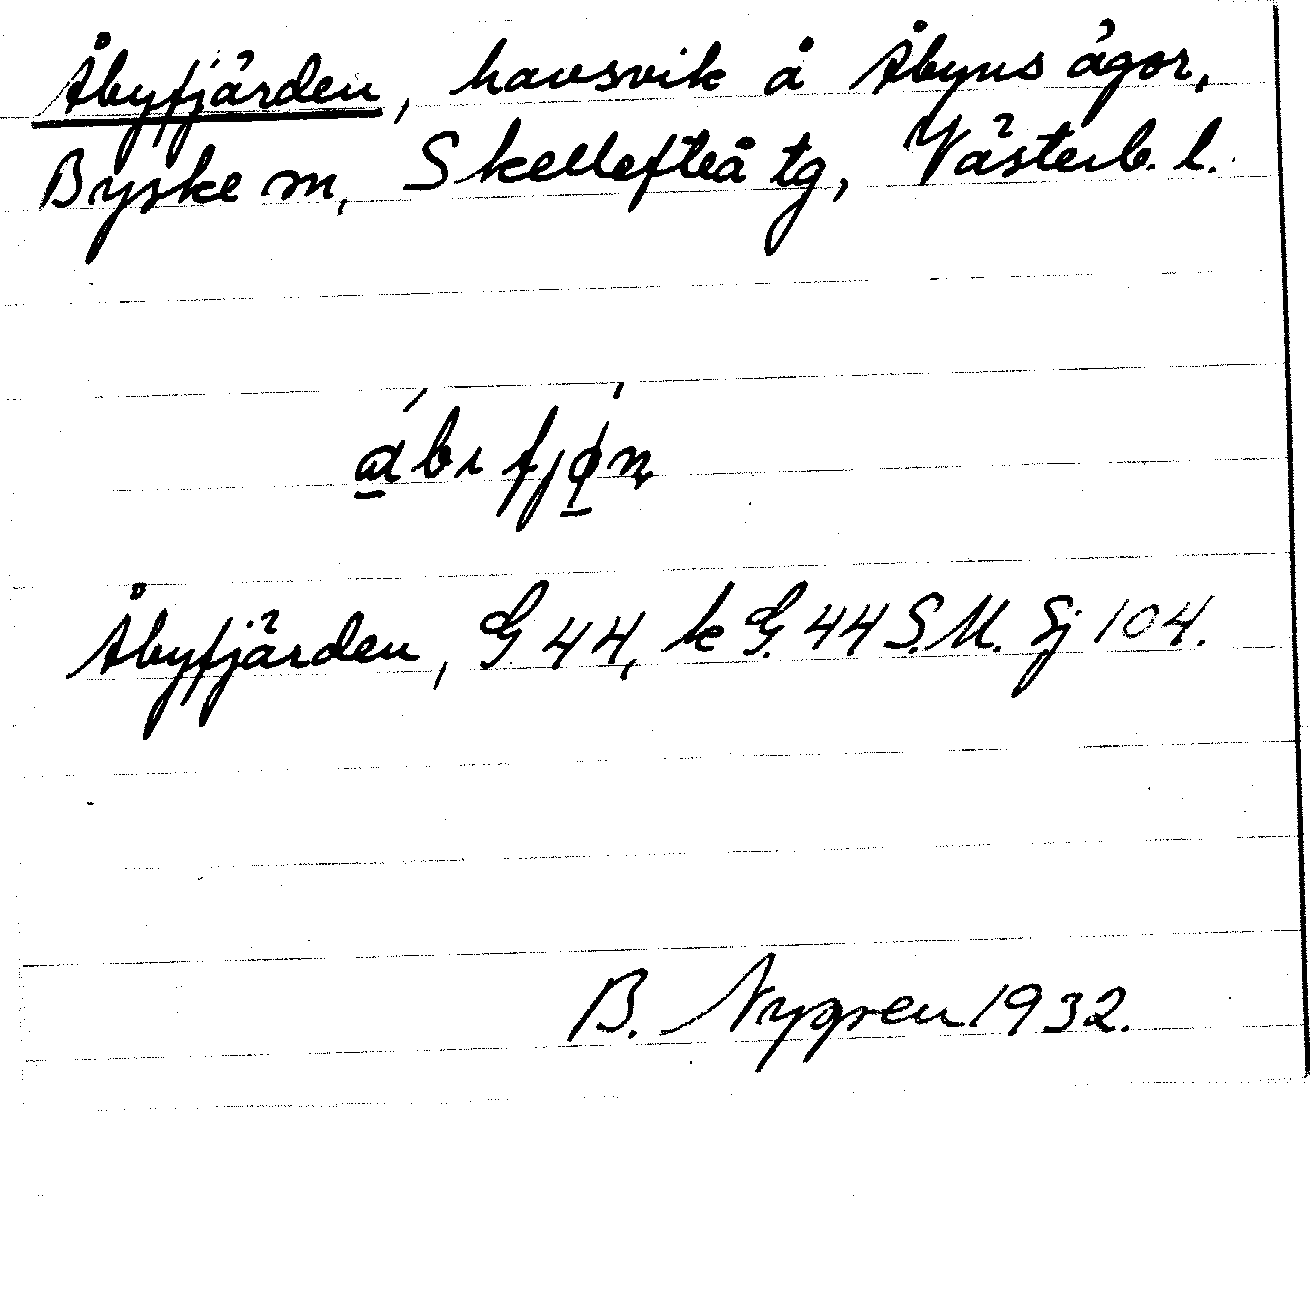 Åbyfjärden, havsvik å Åbyns ägor,
Byske sn, Skellefteå tg, Västerb. l.
Åbyfjärden, G 44, k G. 44 S.M. Sj 104.
B. Nygren 1932.